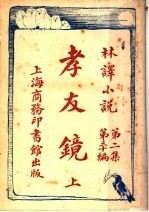 林譯小說
第二集
孝友鏡
上
上海商務印書館出版